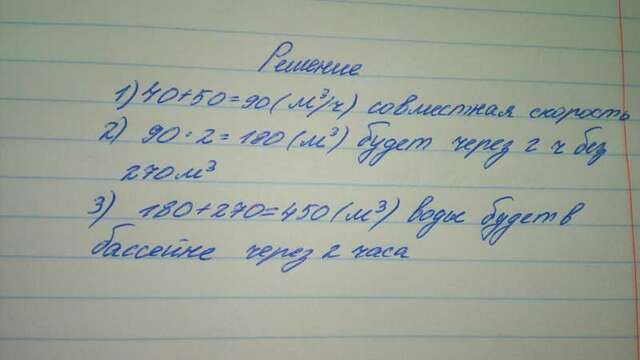 Решение
1) 40+50=90(м³/ч) совместная скорость
2) 90·2=180(м³) будет через 2 ч без
270м³
3) 180+270=450(м³) воды будет в
бассейне через 2 часа